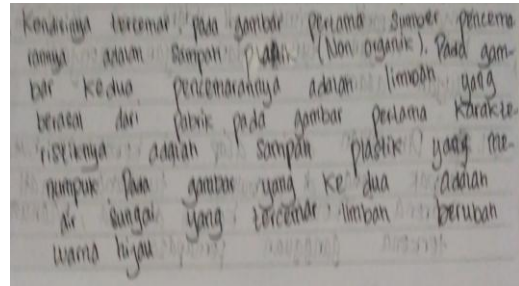 Kondisinya tercemar. pada gambar pertama sumber pencema
rannya adalah sampah plastik (Non organik). Pada gam-
bar kedua pencemarannya adalah limbah yang
berasal dari pabrik. pada gambar pertama Karakte-
ristiknya adalah sampah plastik yang me-
numpuk. Pada gambar yang ke dua adalah
air sungai yang tercemar limbah berubah
warna hijau